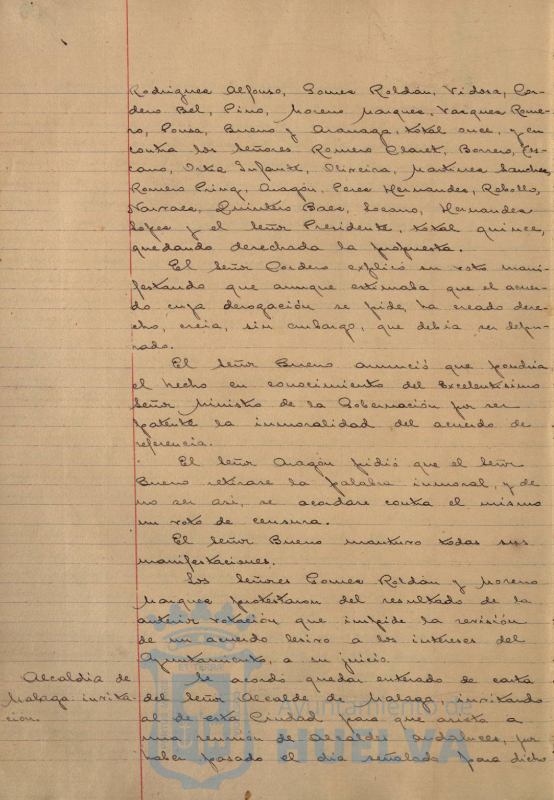 Rodriguez Alfonso, Gomez Roldán, Vidosa, Cor-
dero Bel, Pino, Moreno Marquez, Vazquez Rome-
ro, Ponsa, Bueno y Aranaga, total once, y en
contra los Señores Romero Claret, Borrero, Es-
cano, Ortiz Infante, Oliveira, Martinez Sanchez,
Romero Prinq, Aragón, Perez Hernandez, Rebollo,
Narvaez, Quintero Baez, Lozano, Hernandez
López y el Señor Presidente, total quince,
quedando desechada la propuesta.
El Señor Cordero explicó su voto mani-
festando que aunque estimaba que el acuer-
do cuya derogación se pide, ha creado dere-
cho, creia, sin embargo, que debia ser depu-
rado.
El Señor Bueno anunció que pondria
el hecho en conocimiento del Excelentisimo
Señor Ministro de la Gobernación por ser
patente la inmoralidad del acuerdo de
referencia.
El Señor Aragón pidió que el Señor
Bueno retirase la palabra inmoral, y de
no ser asi, se acordase contra el mismo
un voto de censura.
El Señor Bueno mantuvo todas sus
manifestaciones.
Los Señores Gomez Roldán y Moreno
Marquez protestaron del resultado de la
anterior votación que impide la revisión
de un acuerdo lesivo a los intereses del
Ayuntamiento, a su juicio.
Alcaldia de
Malaga invita-
ción.
Se acordó quedar enterado de carta
del Señor Alcalde de Malaga invitando
al de esta Ciudad para que asista a
una reunión de Alcaldes andaluces, por
haber pasado el dia señalado para dicho
Ayuntamiento de
HUELVA